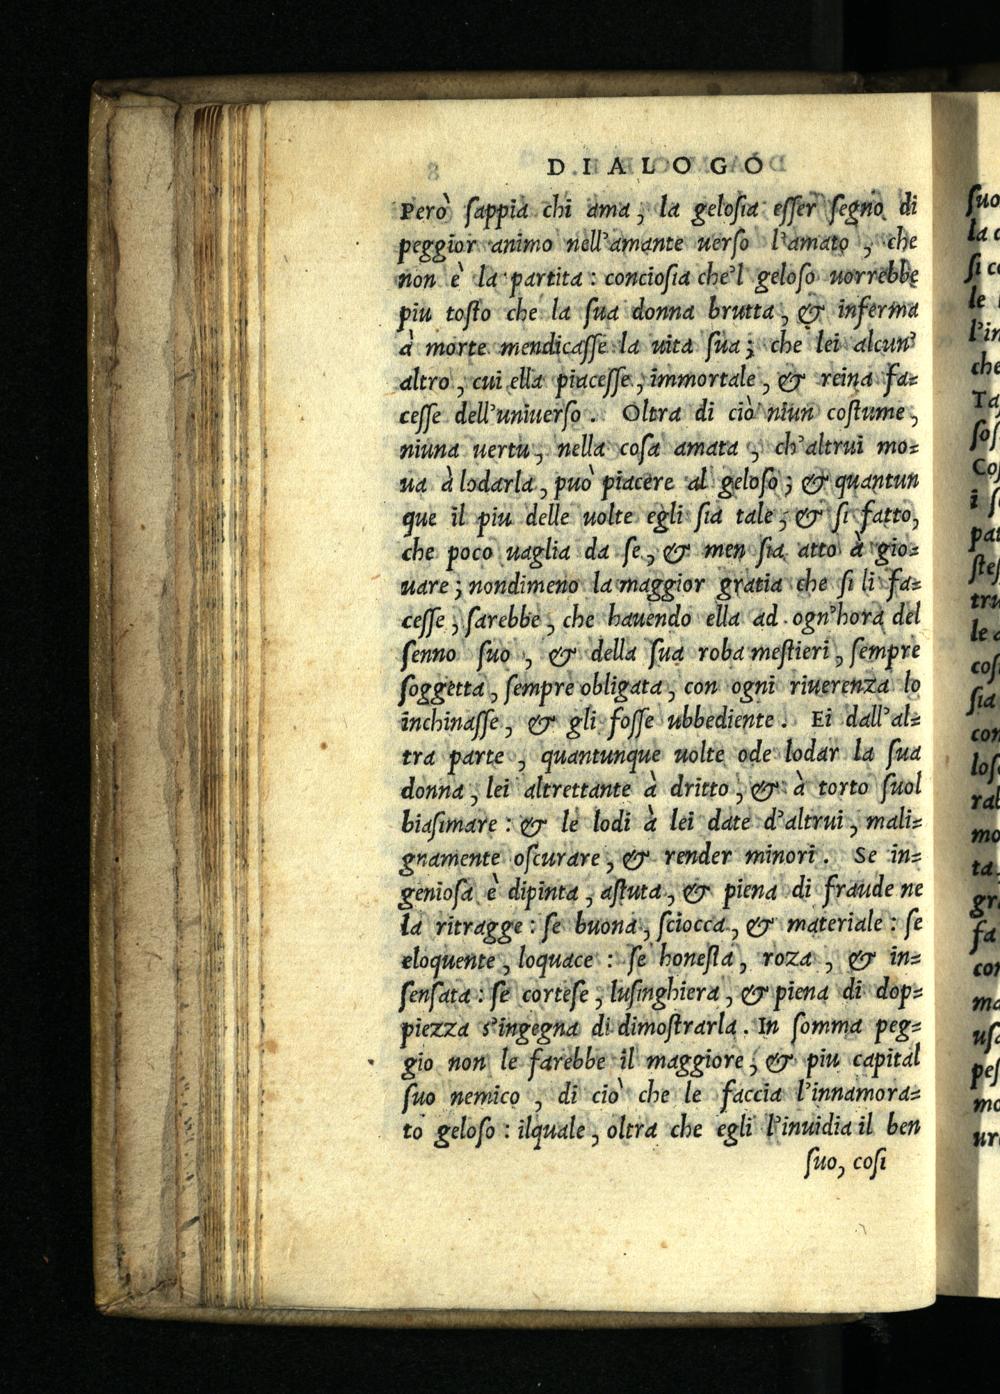 DIALOGO
Però ſappia chi ama, la geloſia eſſer ſegno di
peggior animo nell'amante uerſo l'amato, che
non è la partita: concioſia che'l geloſo uorrebbe
piu toſto che la ſua donna brutta, & inferma
à morte mendicaſſe la uita ſua; che lei alcun'
altro, cui ella piaceſſe, immortale, & reina fa=
ceſſe dell'uniuerſo. Oltra di ciò niun coſtume,
niuna uertu, nella coſa amata, ch'altrui mo=
ua à lodarla, può piacere al geloſo; & quantun
que il piu delle uolte egli ſia tale, & ſi fatto,
che poco uaglia da ſe, & men ſia atto à gio=
uare; nondimeno la maggior gratia che ſi li fa=
ceſſe, ſarebbe, che hauendo ella ad ogn'hora del
ſenno ſuo, & della ſua roba meſtieri, ſempre
ſoggetta, ſempre obligata, con ogni riuerenza lo
inchinaſſe, & gli foſſe ubbediente. Ei dall'al=
tra parte, quantunque uolte ode lodar la ſua
donna, lei altrettante à dritto, & à torto ſuol
biaſimare: & le lodi à lei date d'altrui, mali=
gnamente oſcurare, & render minori. Se in=
genioſa è dipinta, aſtuta, & piena di fraude ne
la ritragge: ſe buona, ſciocca, & materiale: ſe
eloquente, loquace: ſe honeſta, roza, & in=
ſenſata: ſe corteſe, luſinghiera, & piena di dop=
piezza s'ingegna di dimoſtrarla. In ſomma peg=
gio non le farebbe il maggiore, & piu capital
ſuo nemico, di ciò che le faccia l'innamora=
to geloſo: ilquale, oltra che egli l'inuidia il ben
ſuo, coſi
ſuo
la
ſi
le
l'in
che
i
pat
tru
le
coſ
ſia
con
loſ
ral
mo
ta
gr
fa
con
ma
uſ
peſ
mo
ur